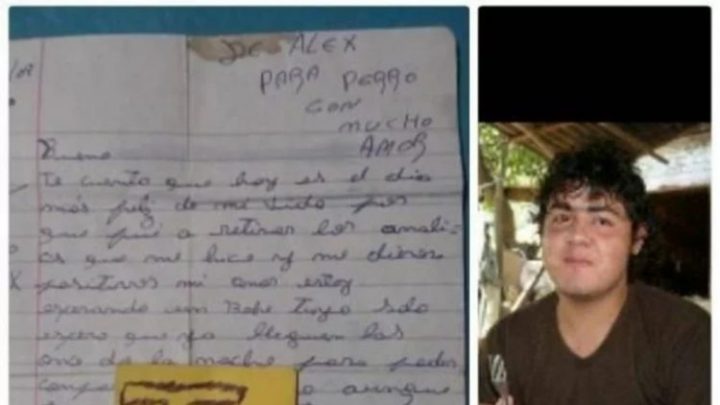 DE ALEX
PARA PERRO
CON
MUCHO
AMOR
Bueno
Te cuento que hoy es el dia
más feliz de mi vida por
que fui a retirar los anali-
cis que me hice y me dieron
positivos mi amor estoy
esperando un Bebe tuyo solo
espero que ya lleguen las
de la noche para poder
aunque